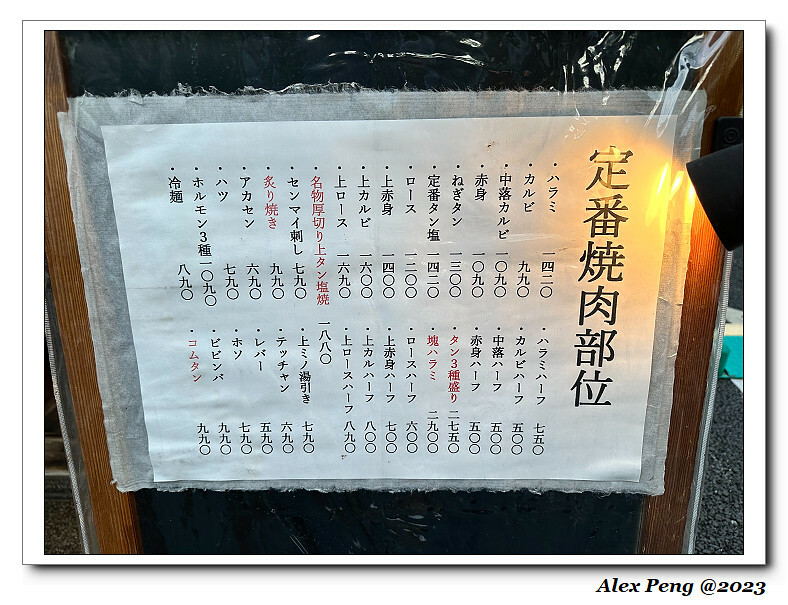 定番焼肉部位
・ハラミ 一四二〇
・カルビ 九九〇
・中落カルビ 一〇九〇
・赤身 一〇九〇
・ねぎタン 一三〇〇
・定番タン塩 一四二〇
・ロース 一二〇〇
・上赤身 一四〇〇
・上カルビ 一六〇〇
・上ロース 一六九〇
・名物厚切り上タン塩焼 一八八〇
・センマイ刺し 七九〇
・炙り焼き 九九〇
・アカセン 六九〇
・ハツ 七九〇
・ホルモン3種 一〇九〇
・冷麺 八九〇
・ハラミハーフ 七五〇
・カルビハーフ 五〇〇
・中落ハーフ 五〇〇
・赤身ハーフ 五〇〇
・タン3種盛り 二七五〇
・塊ハラミ 二九〇〇
・ロースハーフ 六〇〇
・上赤身ハーフ 七〇〇
・上カルハーフ 八〇〇
・上ロースハーフ 八九〇
・上ミノ湯引き 七九〇
・テッチャン 六九〇
・レバー 五九〇
・ホソ 七九〇
・ビビンバ 九九〇
・コムタン 九九〇
Alex Peng @2023